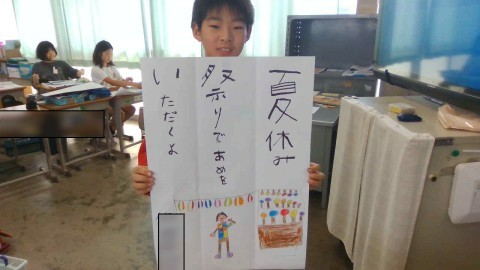 夏休み
祭りであめを
いただくよ